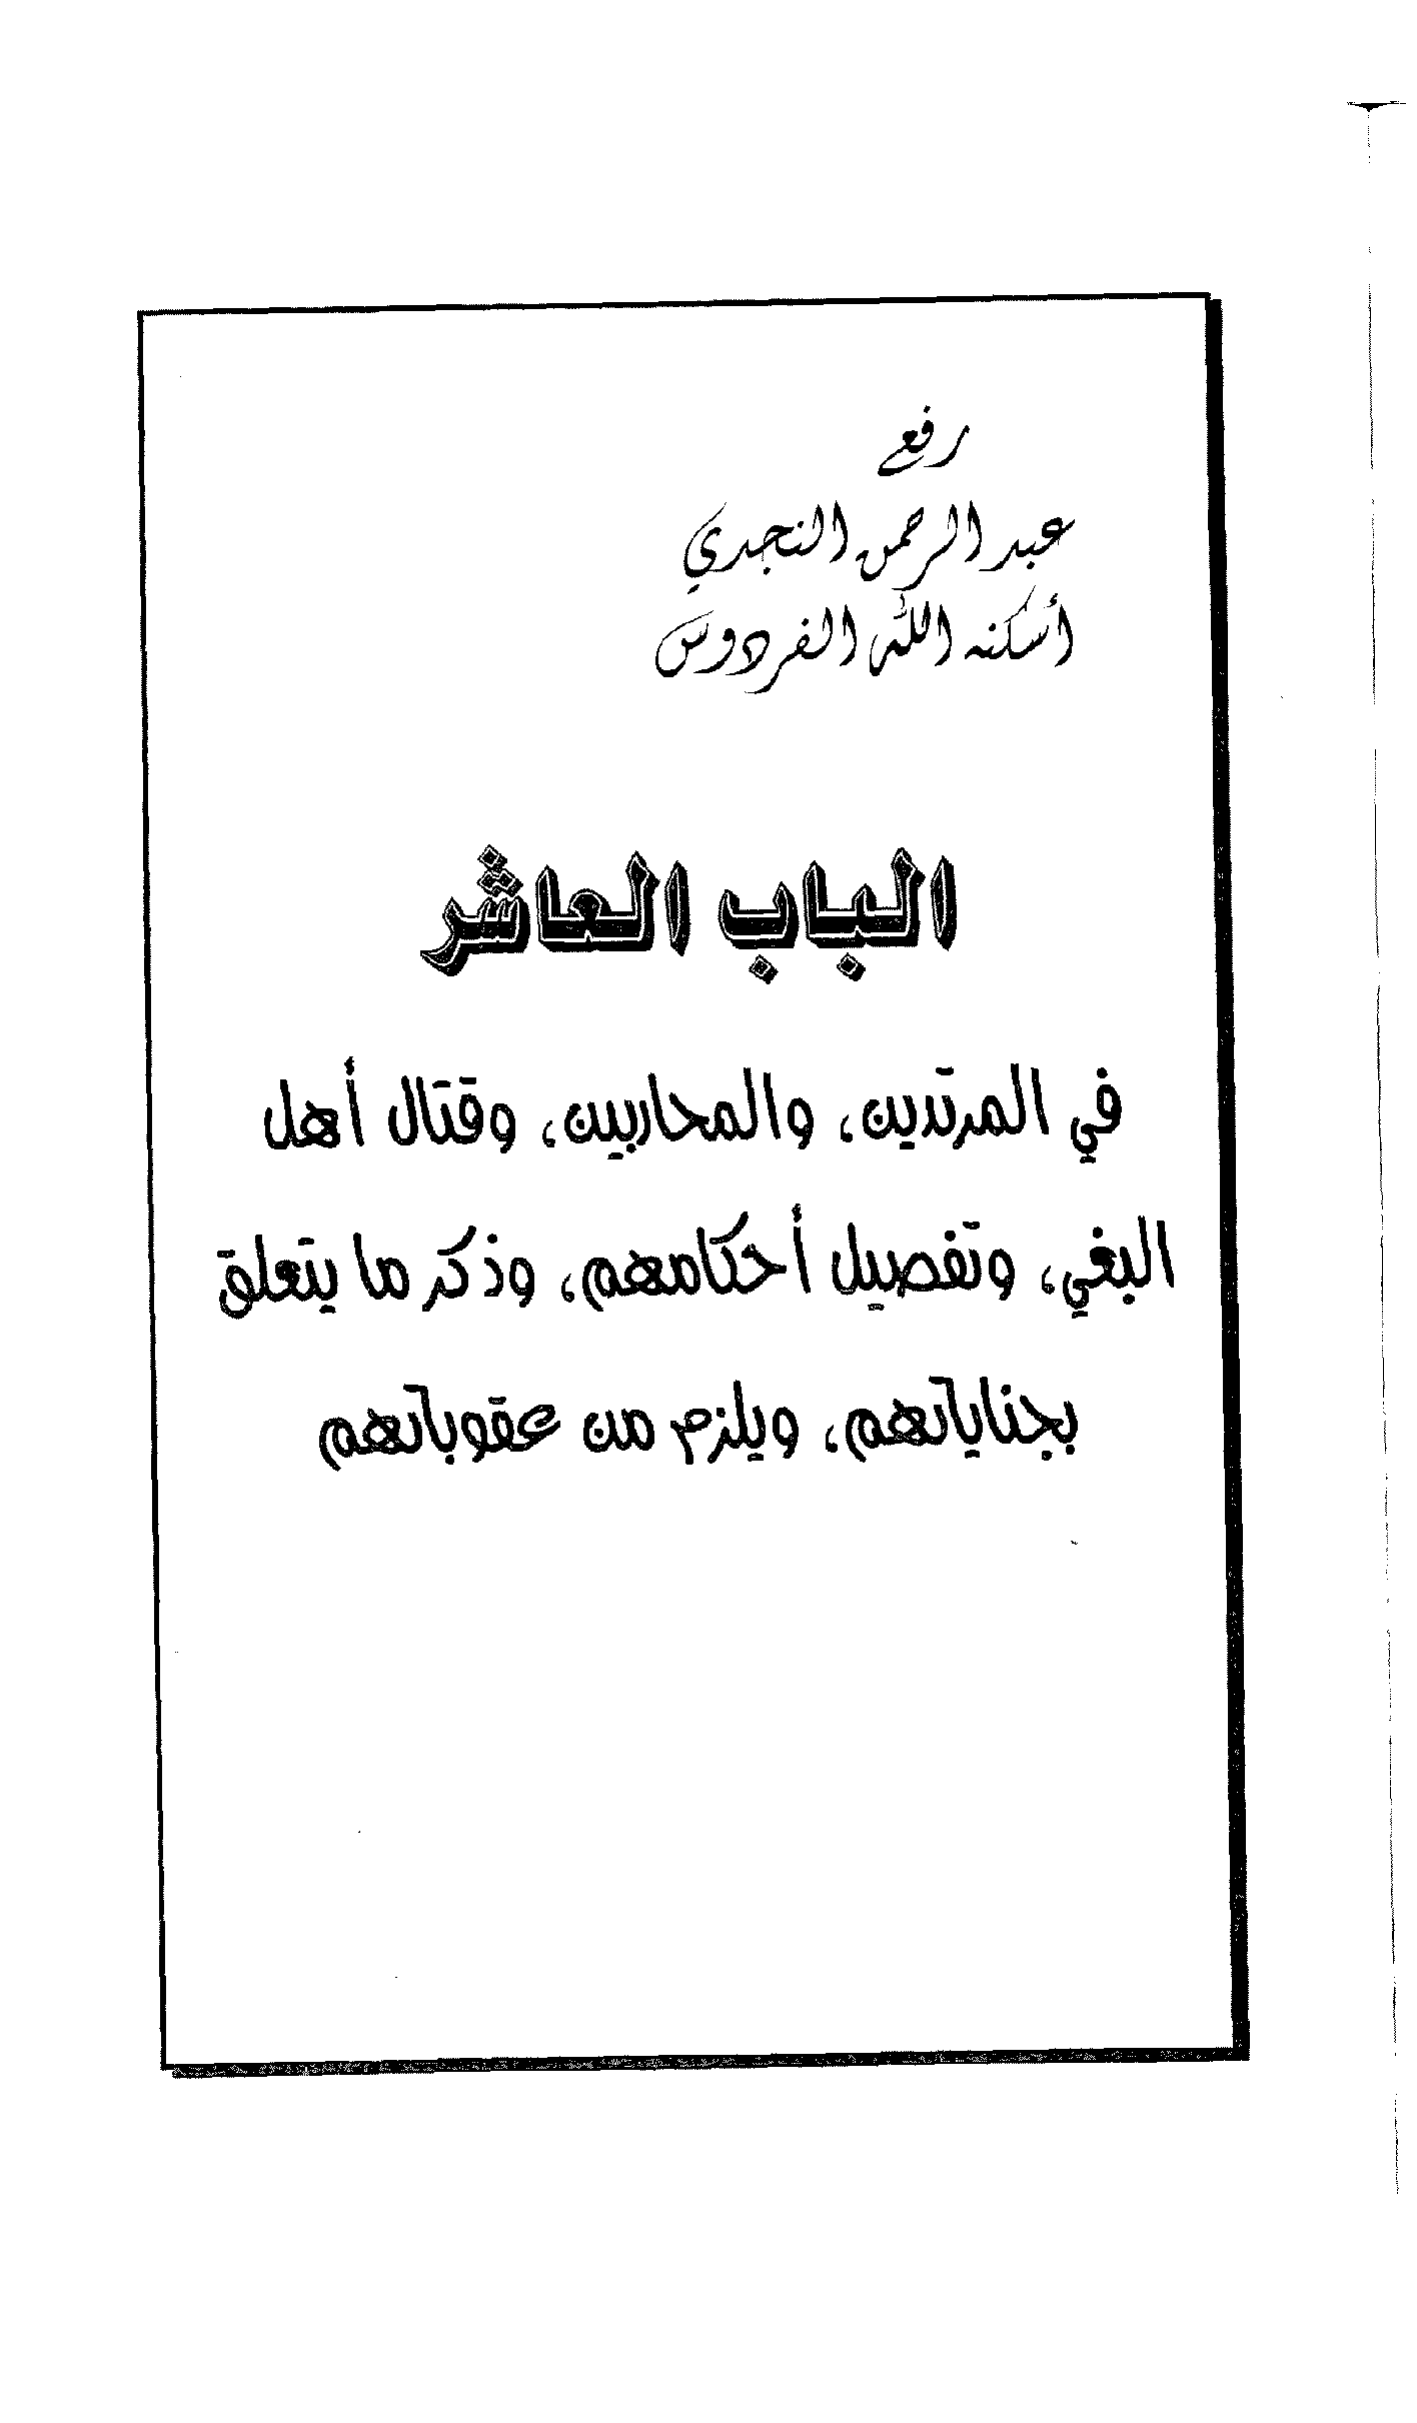 رفع
عبد الرحمن النجدي
أسكنه الله الفردوس
الباب العاشر
في المرتدين، والمحاربين، وقتال أهل
البغي، وتفصيل أحكامهم، وذكر ما يتعلق
بجناياتهم، ويلزم من عقوباتهم